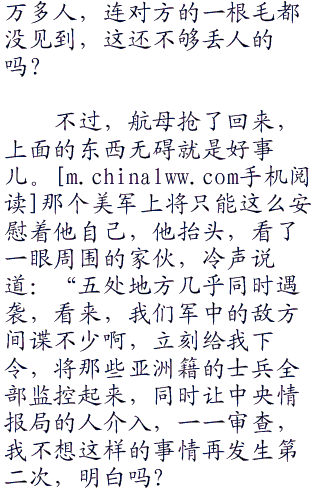 万多人，连对方的一根毛都
没见到，这还不够丢人的
吗？
不过，航母抢了回来，
上面的东西无碍就是好事
儿。[m.china1ww.com手机阅
读]那个美军上将只能这么安
慰着他自己，他抬头，看了
一眼周围的家伙，冷声说
道：“五处地方几乎同时遇
袭，看来，我们军中的敌方
间谍不少啊，立刻给我下
令，将那些亚洲籍的士兵全
部监控起来，同时让中央情
报局的人介入，一一审查，
我不想这样的事情再发生第
二次，明白吗？